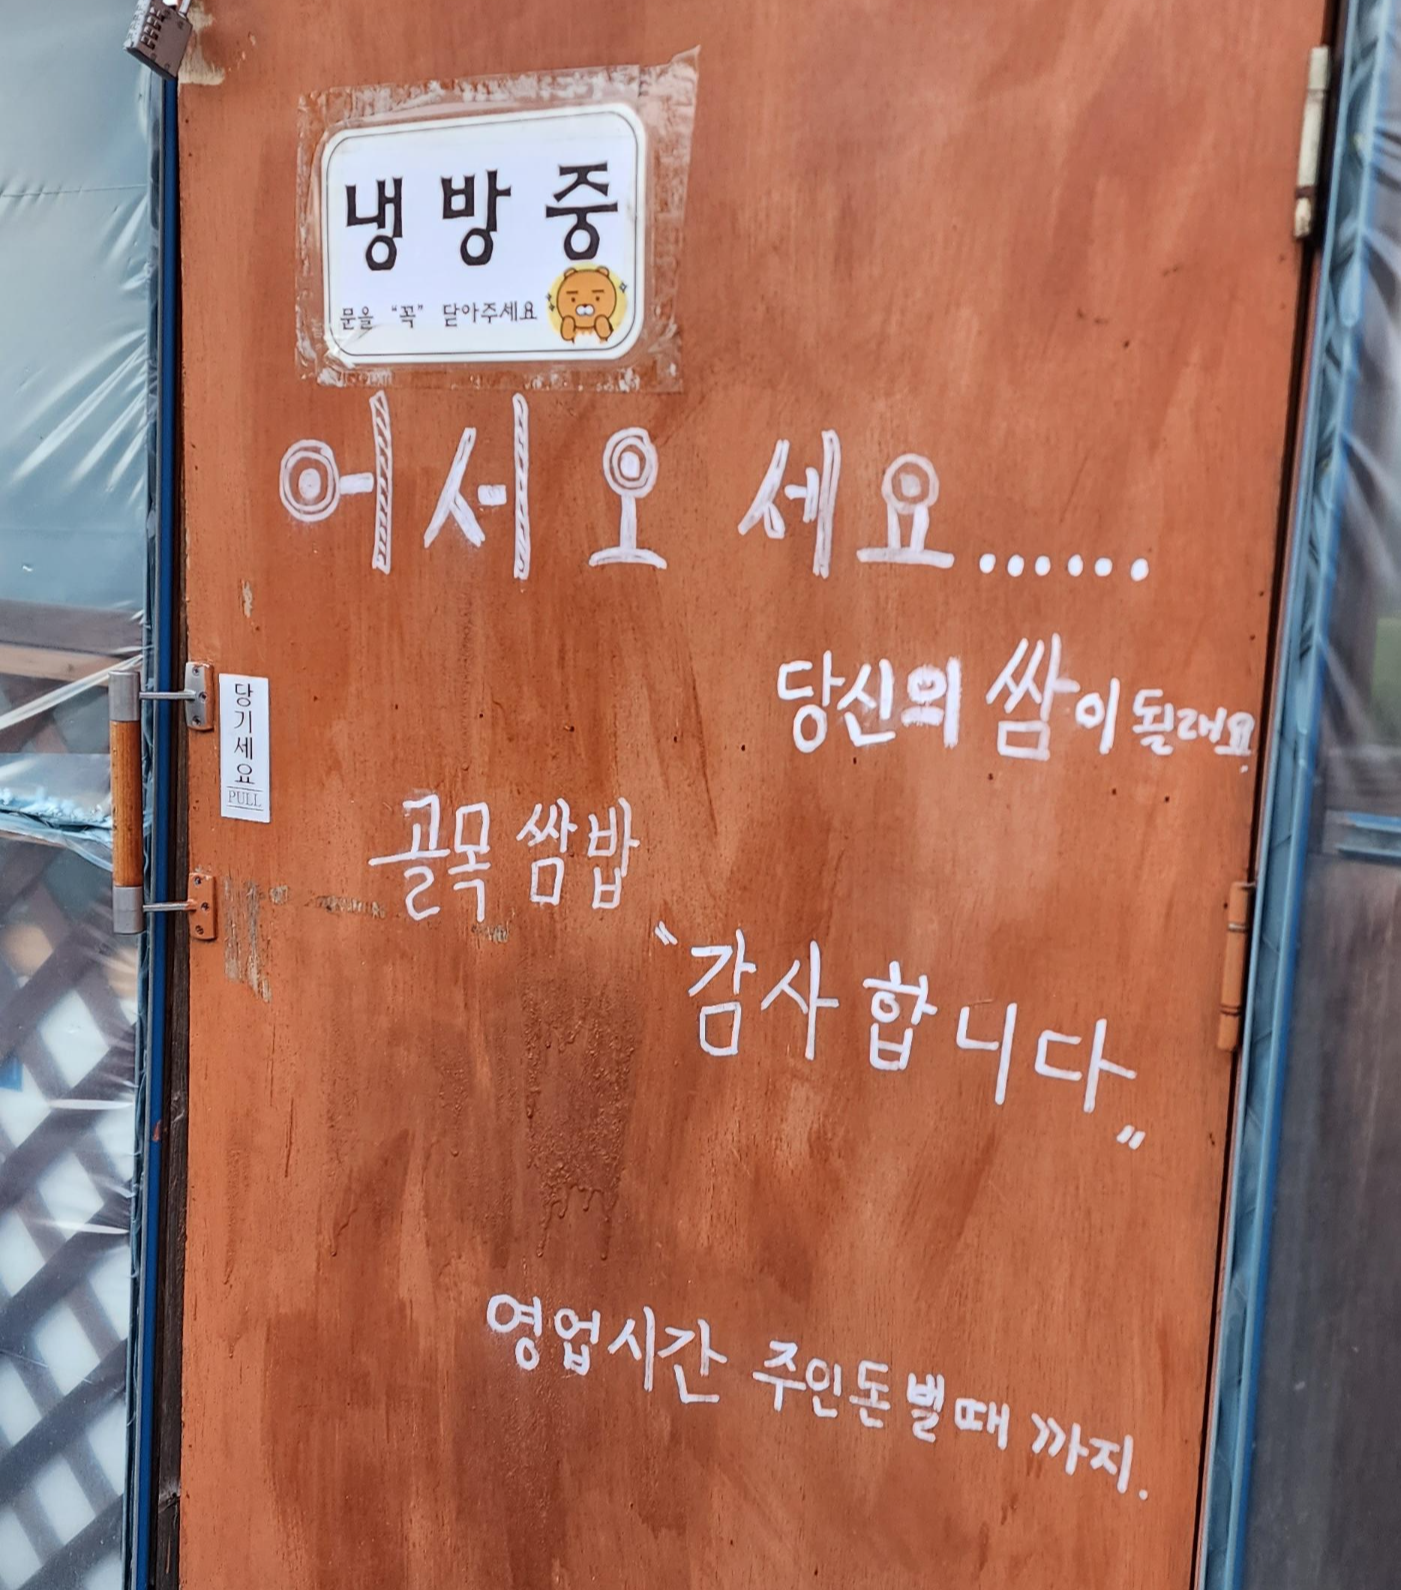 냉방중
문을 "꼭" 닫아주세요
어서오세요......
당신의 쌈이 될래요.
당기세요
PULL
골목 쌈밥
"감사합니다"
영업시간 주인돈벨때 까지.